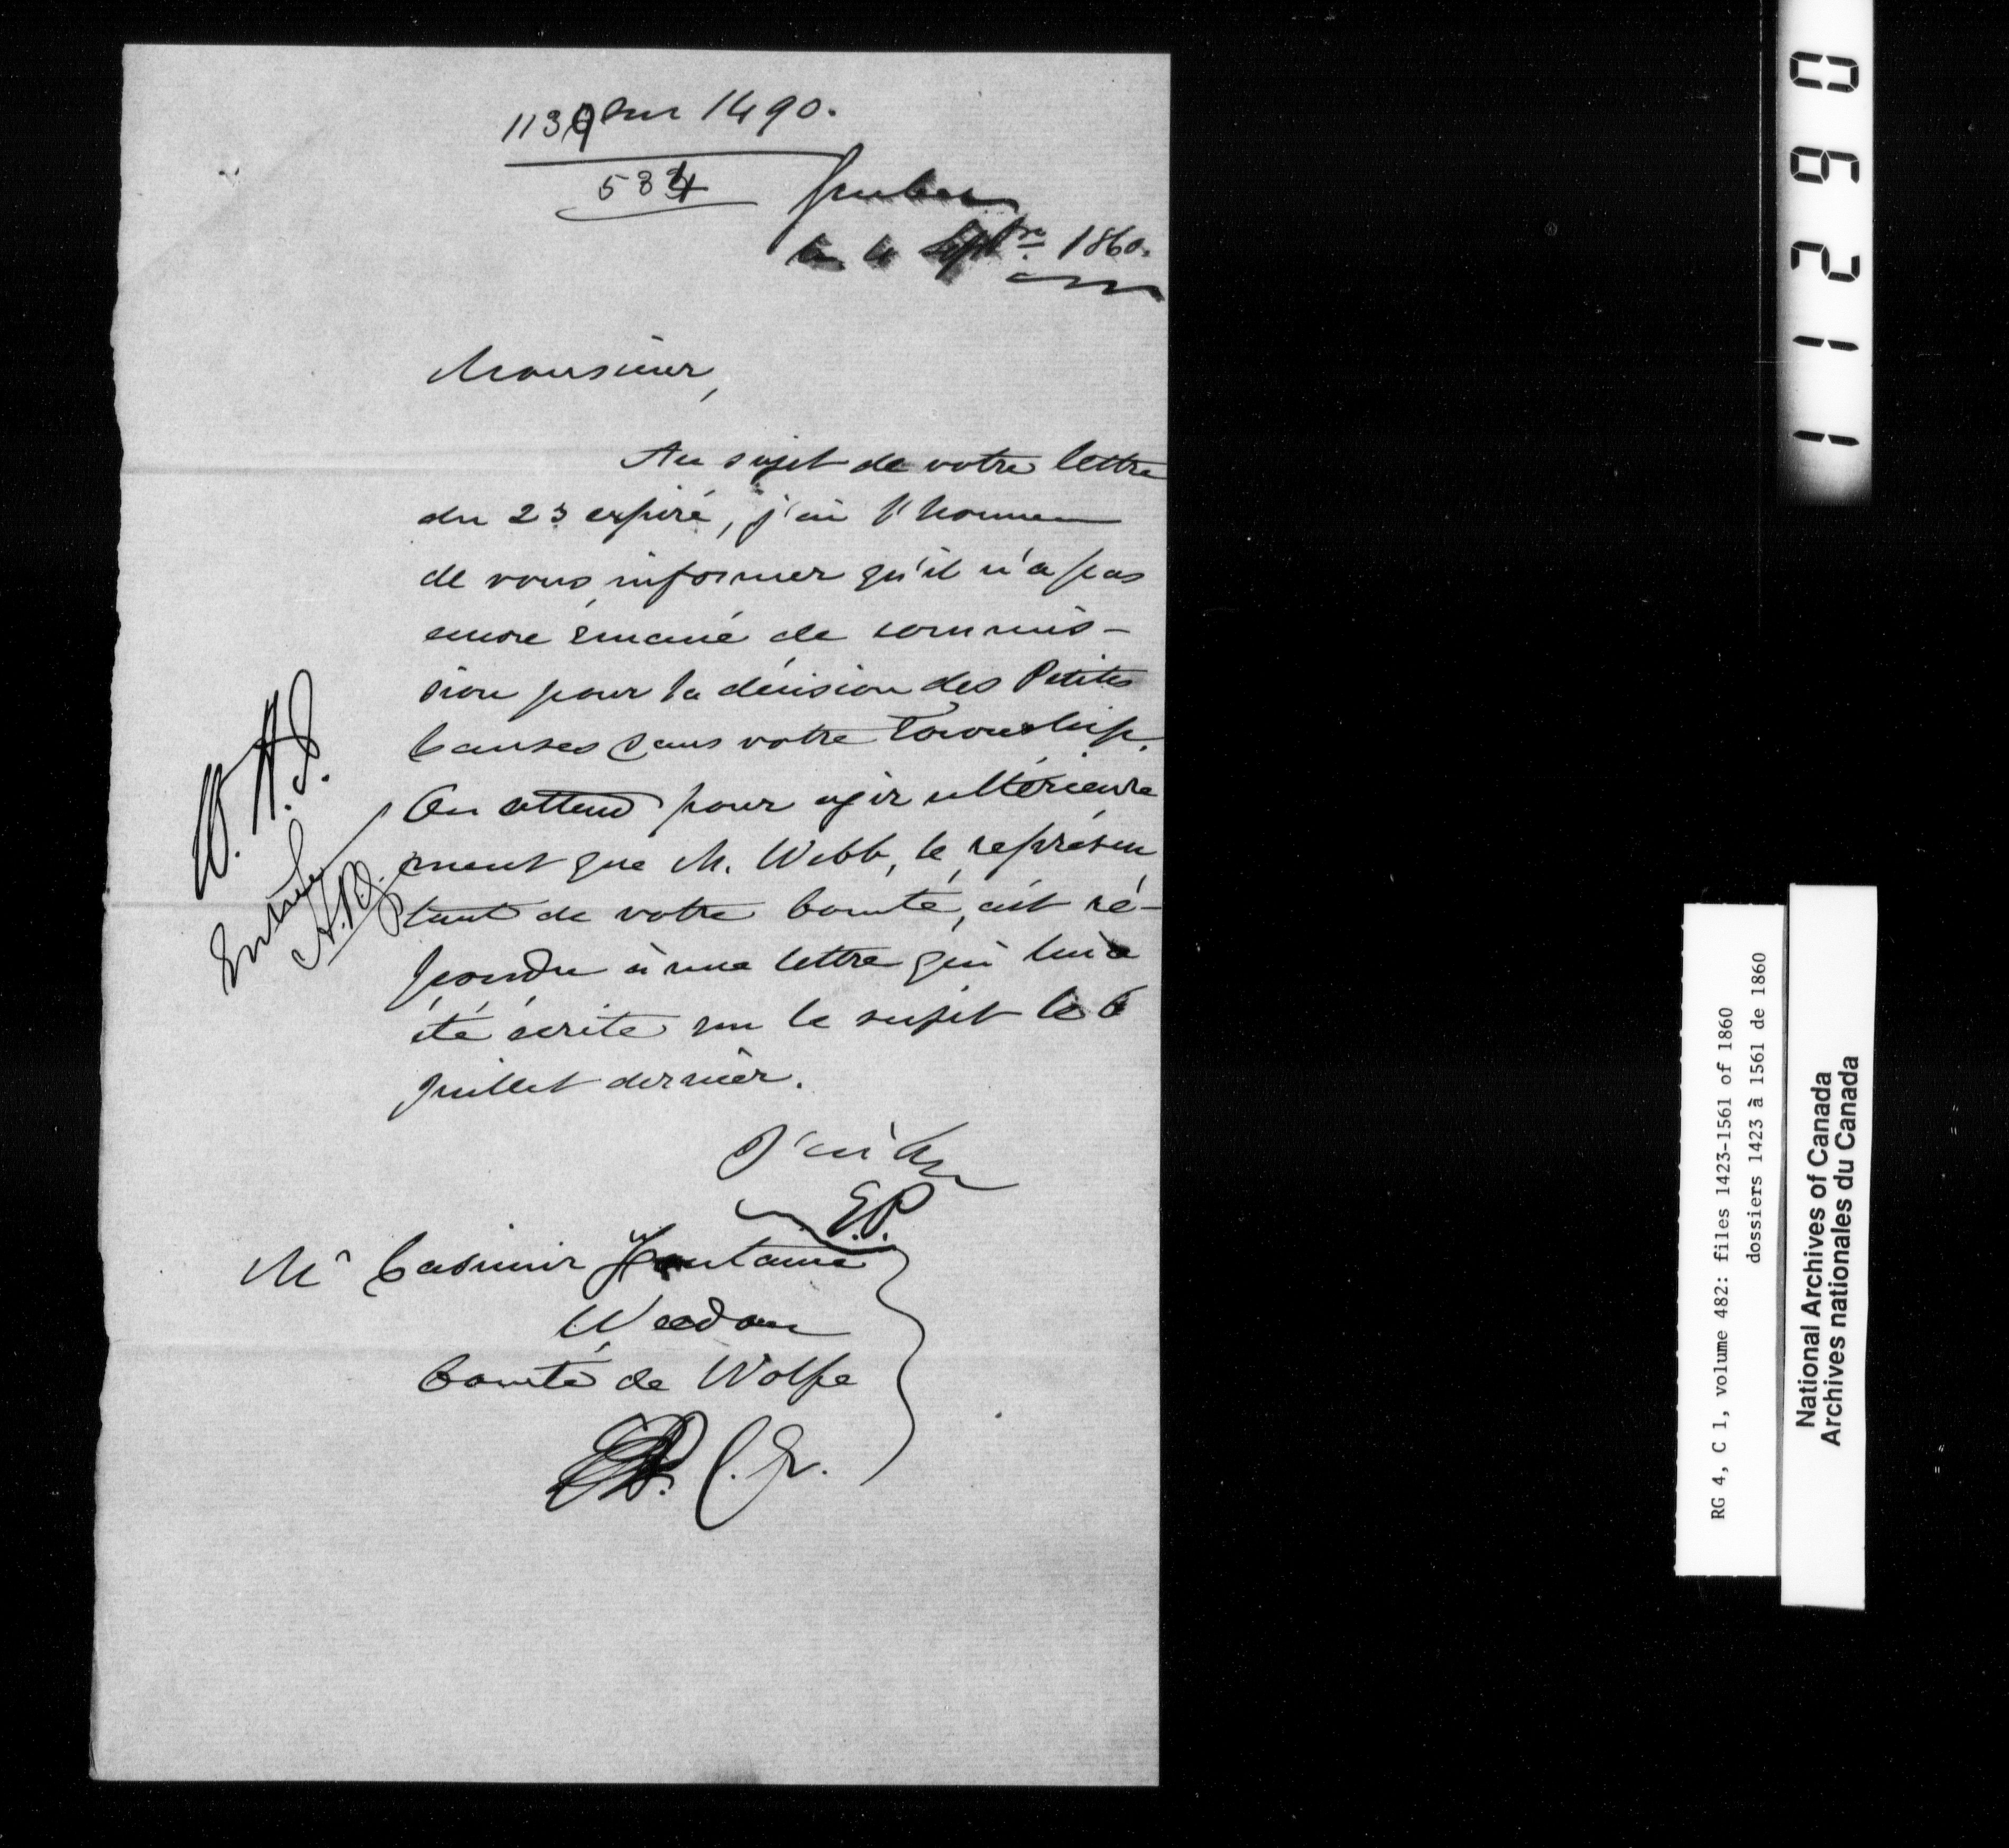 1139 sur 1490.
534
Quebec
le 4 Septre 1860.
Monsieur,
Au sujet de votre lettre
du 23 expiré, j'ai l'honneur
de vous informer qu'il n'a pas
encore émané de commis-
sion pour la décision des Petites
Causes dans votre Township.
On attend pour agir ultérieure
ment que M. Webb, le représen
tant de votre Comté, ait ré-
pondu à une lettre qui lui a
été écrite sur le sujet le 6
Juillet dernier.
J'ai &c
E.P.
W. H. J.
Entrée
A.B.
Mr Casimir Fontaine
Weedon
Comté de Wolfe
11260
RG 4, C 1, volume 482: files 1423-1561 of 1860
dossiers 1423 à 1561 de 1860
National Archives of Canada
Archives nationales du Canada